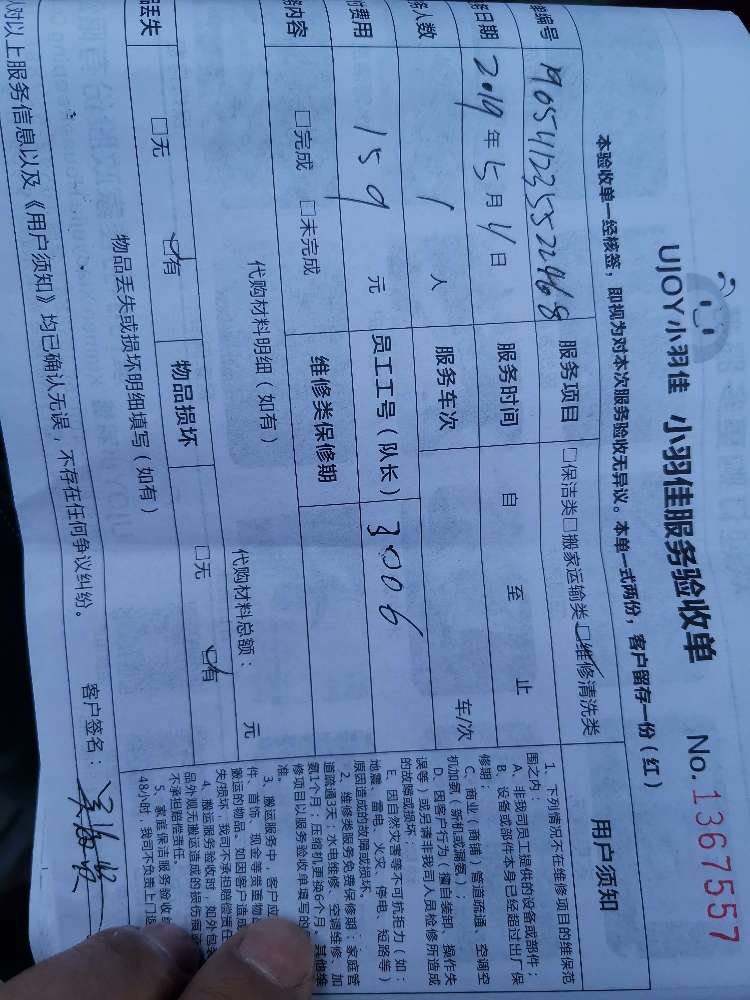 UJOY小羽佳 小羽佳服务验收单 No.1367557
本验收单一经核签，即视为对本次服务验收无异议。本单一式两份，客户留存一份（红）
编号
服务项目 □保洁类□搬家运输类☑维修清洗类
日期 2019年5月4日 服务时间 自 至 止
人数 1人 服务车次 车/次
费用 159元 员工工号（队长） 3006
内容 □完成 □未完成 维修类保修期
代购材料明细（如有） 代购材料总额： 元
丢失 □无 ☑有 物品损坏 □无 ☑有
物品丢失或损坏明细填写（如有）
对以上服务信息以及《用户须知》均已确认无误，不存在任何争议纠纷。 客户签名：
用户须知
1、下列情况不在维修项目的维保范
围之内：
A、非我司员工提供的设备或部件；
B、设备或部件本身已经超过出厂保
修期；
C、商业（商铺）管道疏通、空调空
机加氟（新机或漏氨）；
D、因客户行为（擅自装卸、操作失
误等）或另请非我司人员检修所造成
的故障或损坏；
E、因自然灾害等不可抗拒力（如：
地震、雷电、火灾、停电、短路等）
原因造成的故障或损坏。
2、维修类服务免费保修期：家庭管
道疏通3天；水电维修、空调维修、加
氨1个月；压缩机更换6个月。其他维
修项目以服务验收单填写的
准。
3、搬运服务中，客户应
件、首饰、现金等贵重物品
搬运的物品。如因客户造成
失/损坏，我司不承担赔偿责任
4、搬运服务验收时，如外包装
品外观无搬运造成的损伤痕
不承担赔偿责任。
5、家庭保洁服务验收
48小时，我司不负责上门返